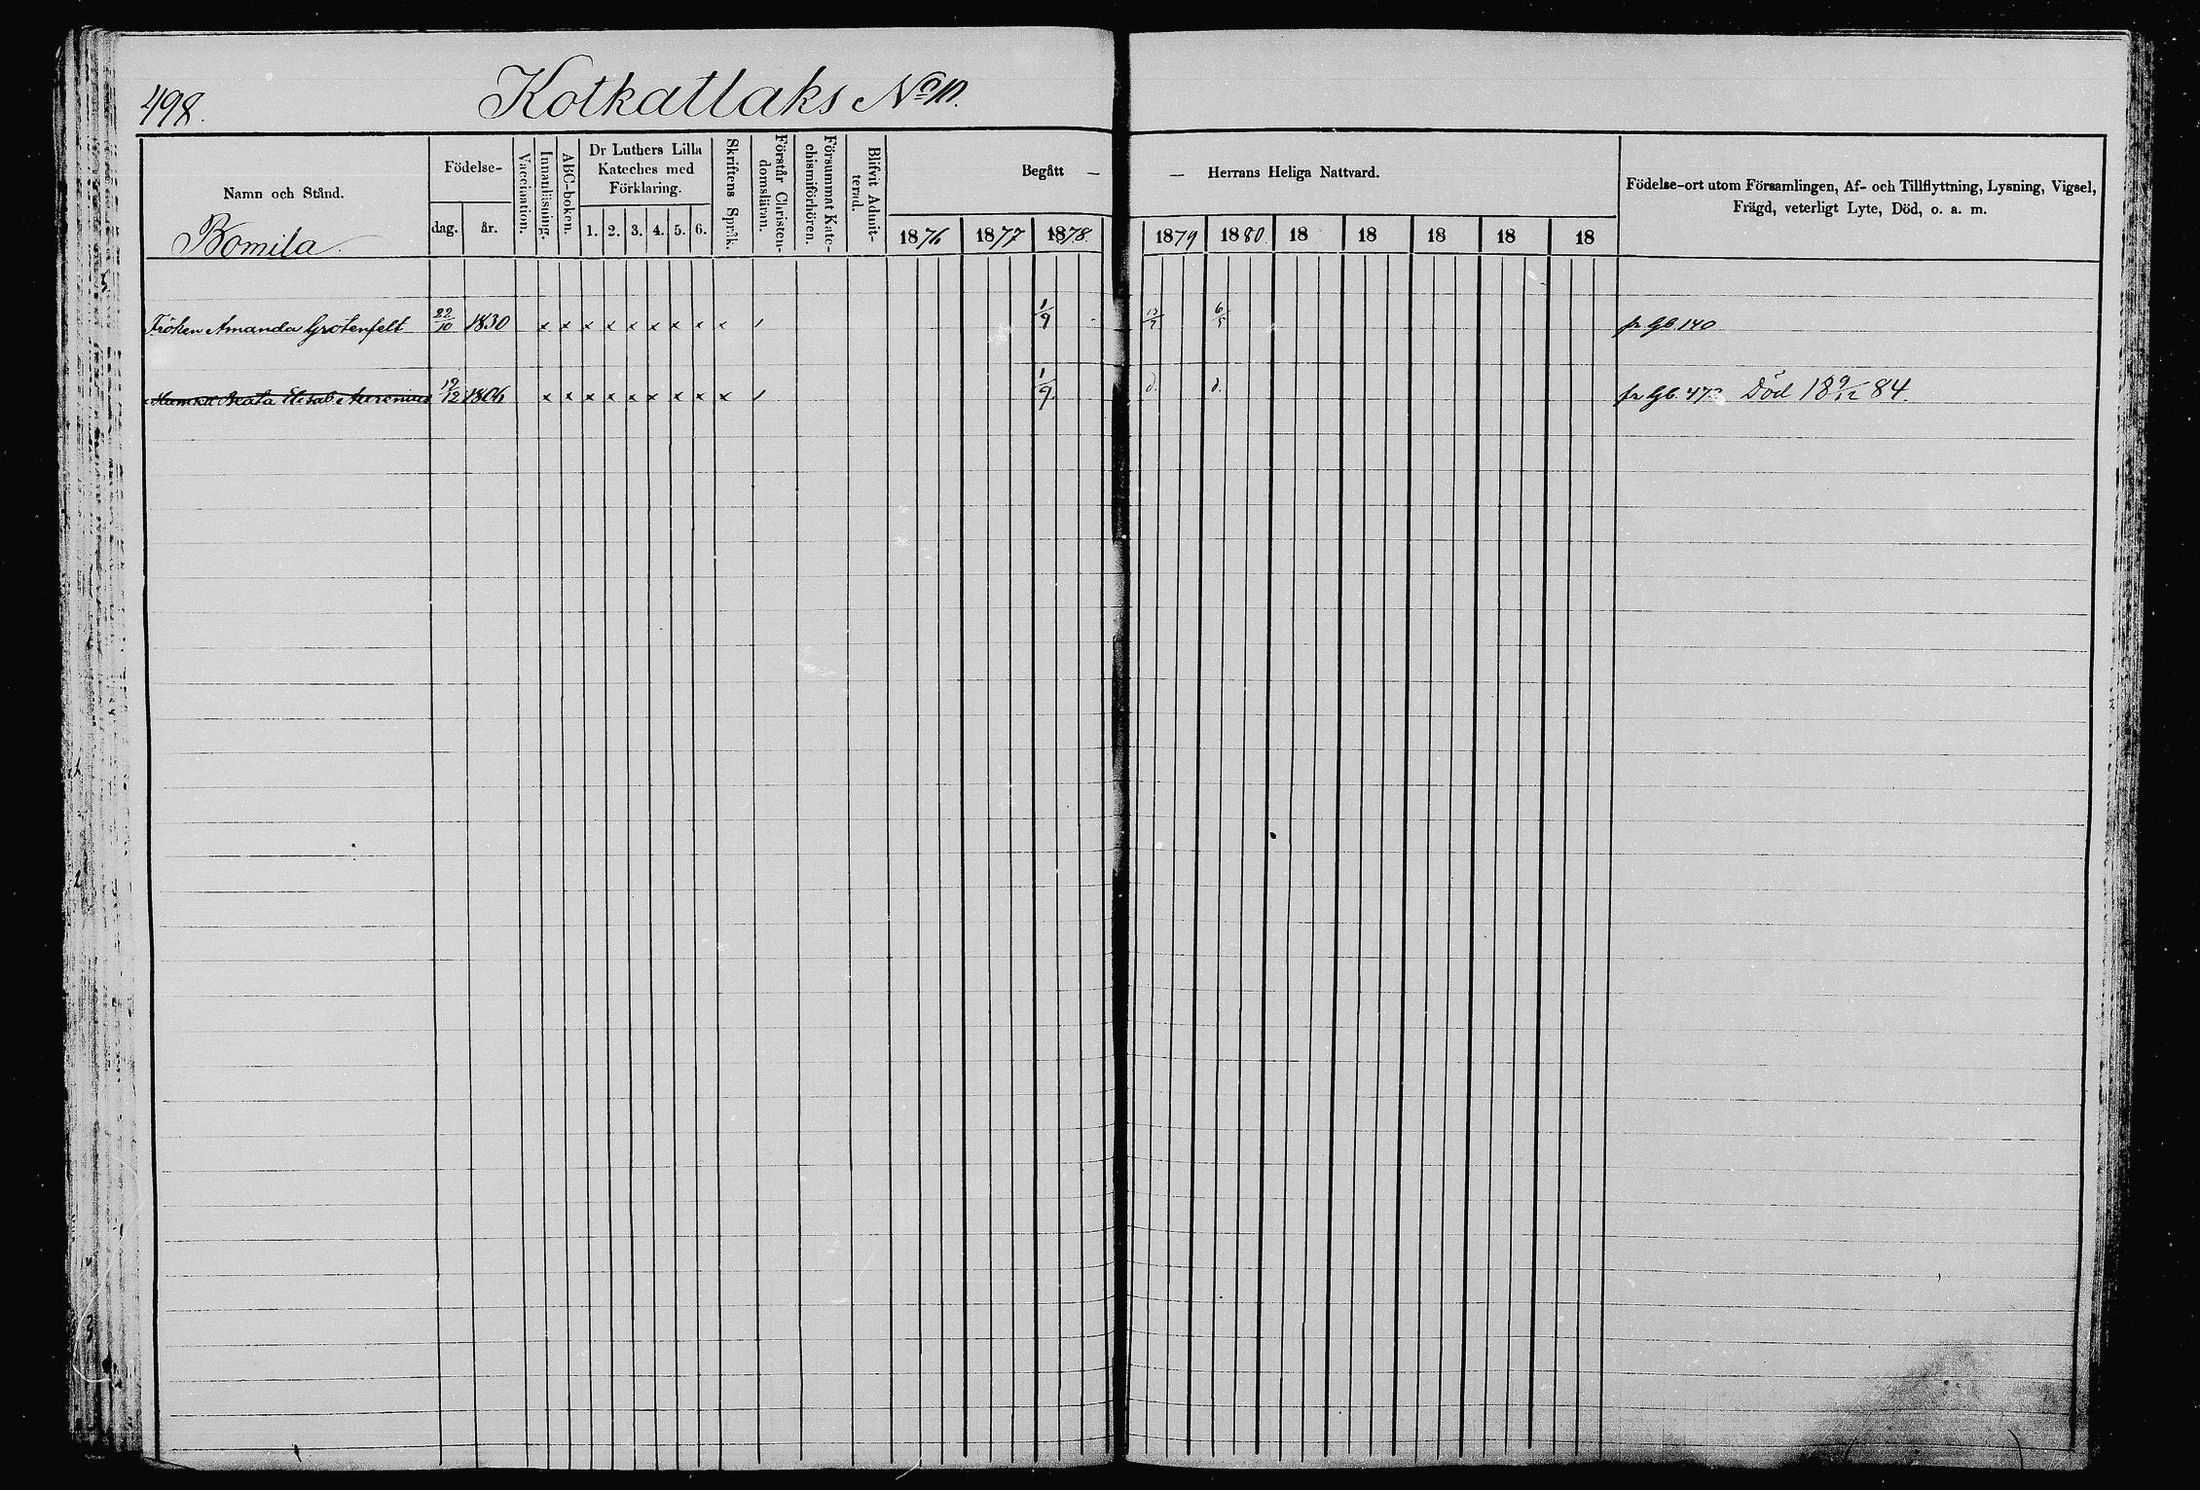 498.
Kotkatlaks No 10.
Namn och Stånd.
Födelse-
dag.
år.
Vaccination.
Innanläsning.
ABC-boken.
Dr Luthers Lilla
Kateches med
Förklaring.
1. 2. 3. 4. 5. 6.
Skriftens Språk.
Förstår Christen-
domsläran.
Försummat Kate-
chismiförhören.
Blifvit Admit-
terad.
Begått — — Herrans Heliga Nattvard.
1876 1877 1878 1879 1880 18 18 18 18 18
Födelse-ort utom Församlingen, Af- och Tillflyttning, Lysning, Vigsel,
Frägd, veterligt Lyte, Död, o. a. m.
Bomila
Fröken Amanda Grotenfelt 22/10 1830 x x x x x x x x x 1/9 13/7 6/5 fr Gb. 140
Beata Elisab. 19/12 1806 x x x x x x x x x 1/9 d. d. fr Gb. 473 Död 18 9/12 84.